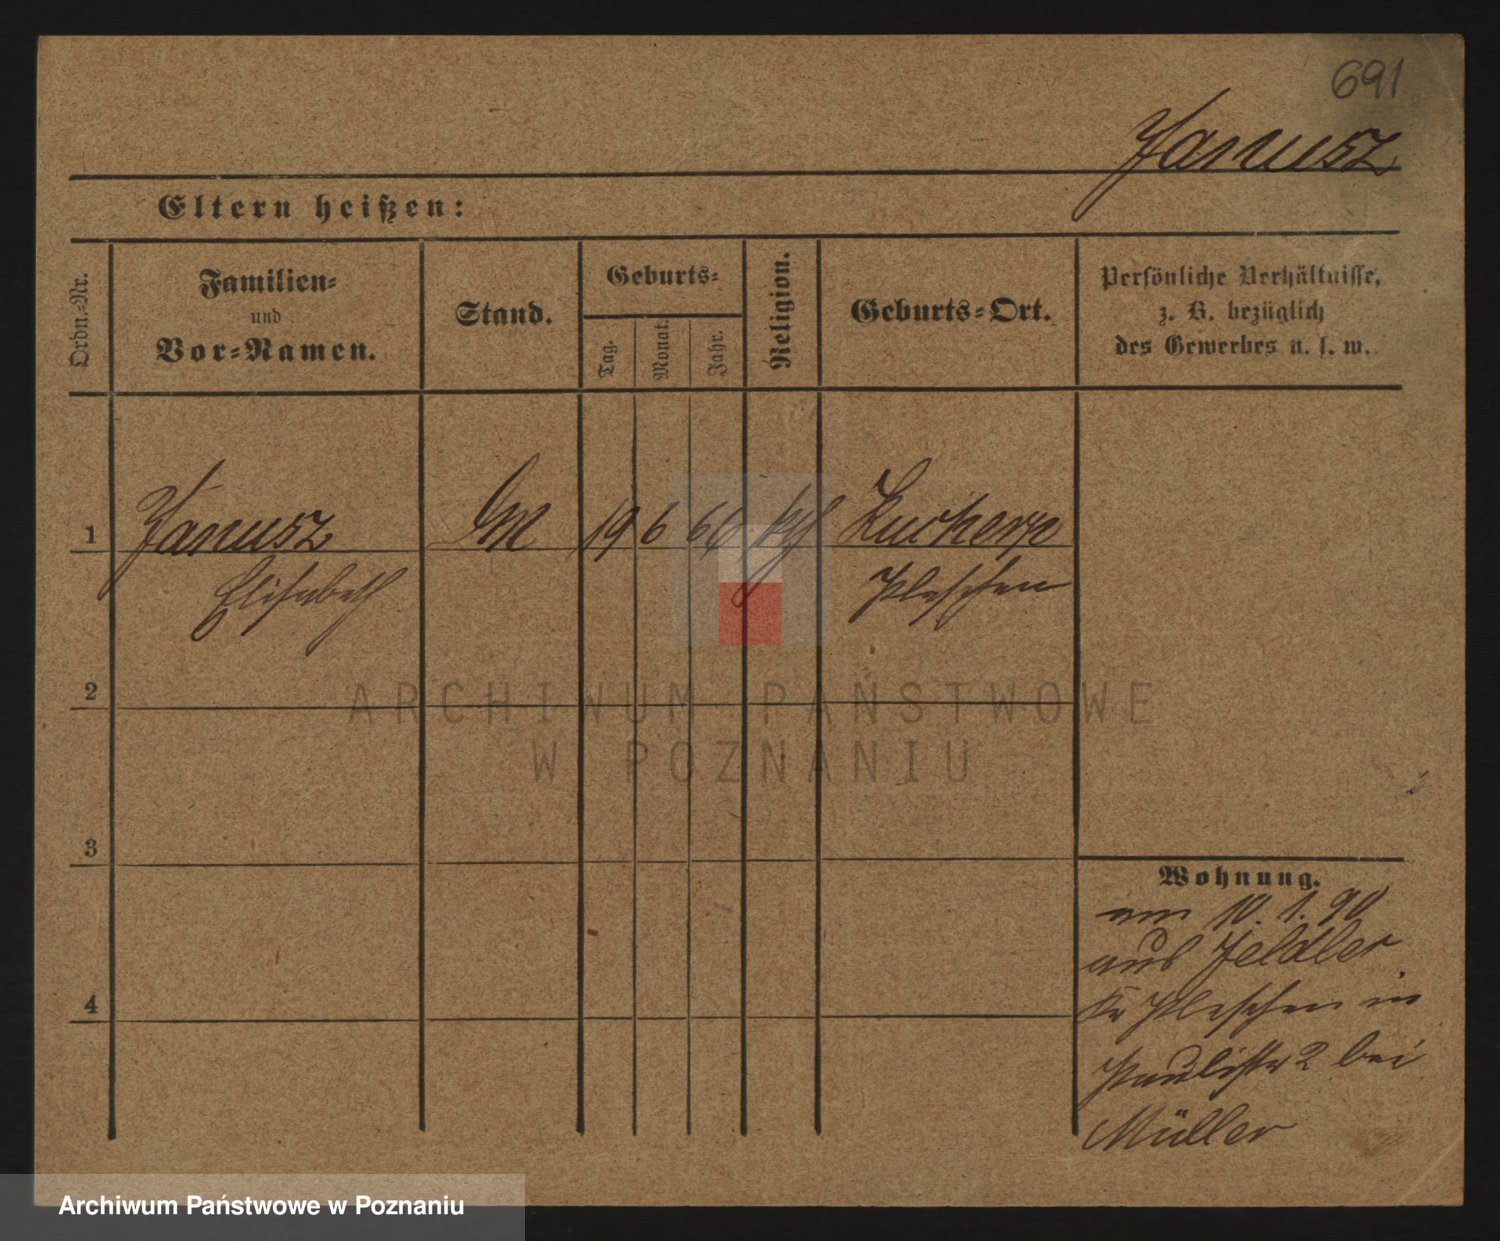 691
Janusz
Eltern heißen:
Ordn.-Nr.
Familien-
und
Vor-Namen.
Stand.
Geburts-
Tag.
Monat.
Jahr.
Religion.
Geburts-Ort.
Persönliche Verhältnisse,
z. B. bezüglich
des Gewerbes u. s. w.
1
Janusz
Elisabeth
19
6
66
Pleschen
2
3
4
Wohnung.
am 10.1.90
aus
Kr Pleschen in
Paulistr 2 bei
Müller
ARCHIWUM PAŃSTWOWE
W POZNANIU
Archiwum Państwowe w Poznaniu